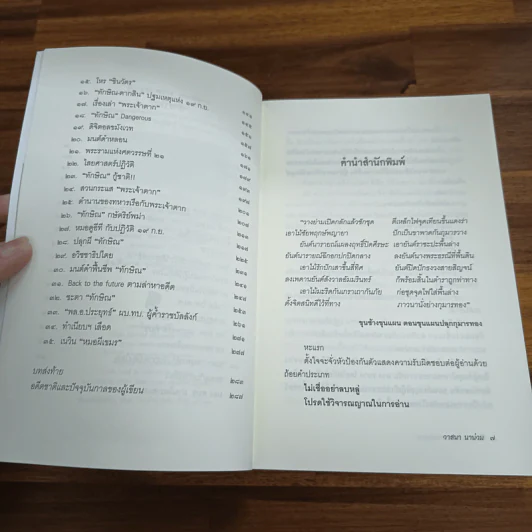 ๑๕. โหร "ชินบัตร"
๑๖. "ทักษิณ-ตากสิน" ปฐมเหตุแห่ง ๑๙ ก.ย.
๑๗. เรื่องเล่า "พระเจ้าตาก"
๑๘. "ทักษิณ" Dangerous
๑๙. ลิขิตอสรพิษ
๒๐. มนต์ดำหลอน
๒๑. พระรามแห่งศตวรรษที่ ๒๑
๒๒. ไสยศาสตร์ปฏิวัติ
๒๓. "ทักษิณ" กู้ชาติ!!
๒๔. สวนกระแส "พระเจ้าตาก"
๒๕. ตำนานของทหารเรือกับพระเจ้าตาก
๒๖. "ทักษิณ" กษัตริย์พม่า
๒๗. หมอดูอีที กับปฏิวัติ ๑๙ ก.ย.
๒๘. ปลุกผี "ทักษิณ"
๒๙. อวิชชาธิปไตย
๓๐. มนต์ดำฟื้นชีพ "ทักษิณ"
๓๑. Back to the future ตามล่าหาอดีต
๓๒. ชะตา "ทักษิณ"
๓๓. "พล.อ.ประยุทธ์" ผบ.ทบ. ผู้ค้ำราชบัลลังก์
๓๔. ทำเนียบฯ เลือด
๓๕. เนวิน "หมอผีเขมร"
๒๗๗
บทส่งท้าย
๒๘๓
อดีตชาติและปัจจุบันกาลของผู้เขียน
๒๘๗
คำนำสำนักพิมพ์
"วางย่ามเปิดกลักแล้วชักชุด ตีเหล็กไฟจุดเทียนขึ้นแดงร่า
เอาไม้ชัยพฤกษ์พญายา ปักเป็นขาพาดกันกุมารวาง
ยันต์นารายณ์แผลงฤทธิ์ปิดศีรษะ เอายันต์ราชะปะพื้นล่าง
ยันต์นารายณ์ฉีกอกปกปิดกลาง ลงยันต์นางพระธรณีที่พื้นดิน
เอาไม้รักปักเสาขึ้นสี่ทิศ ยันต์ปิดปักธงวงสายสิญจน์
ลงเพดานยันต์สังวาลอัมรินทร์ ก็พร้อมสิ้นในตำราถูกท่าทาง
เอาไม้มะริดกันเกราเถากันภัย ก่อชุดจุดไฟใส่พื้นล่าง
ตั้งจิตสนิทดีไว้ที่ทาง ภาวนานั่งย่างกุมารทอง"
ขุนช้างขุนแผน ตอนขุนแผนปลุกกุมารทอง
หะแรก
ตั้งใจจะจั่วหัวป้องกันตัวแสดงความรับผิดชอบต่อผู้อ่านด้วย
ถ้อยคำประเภท
ไม่เชื่ออย่าลบหลู่
โปรดใช้วิจารณญาณในการอ่าน
วาสนา นาน่วม ๗